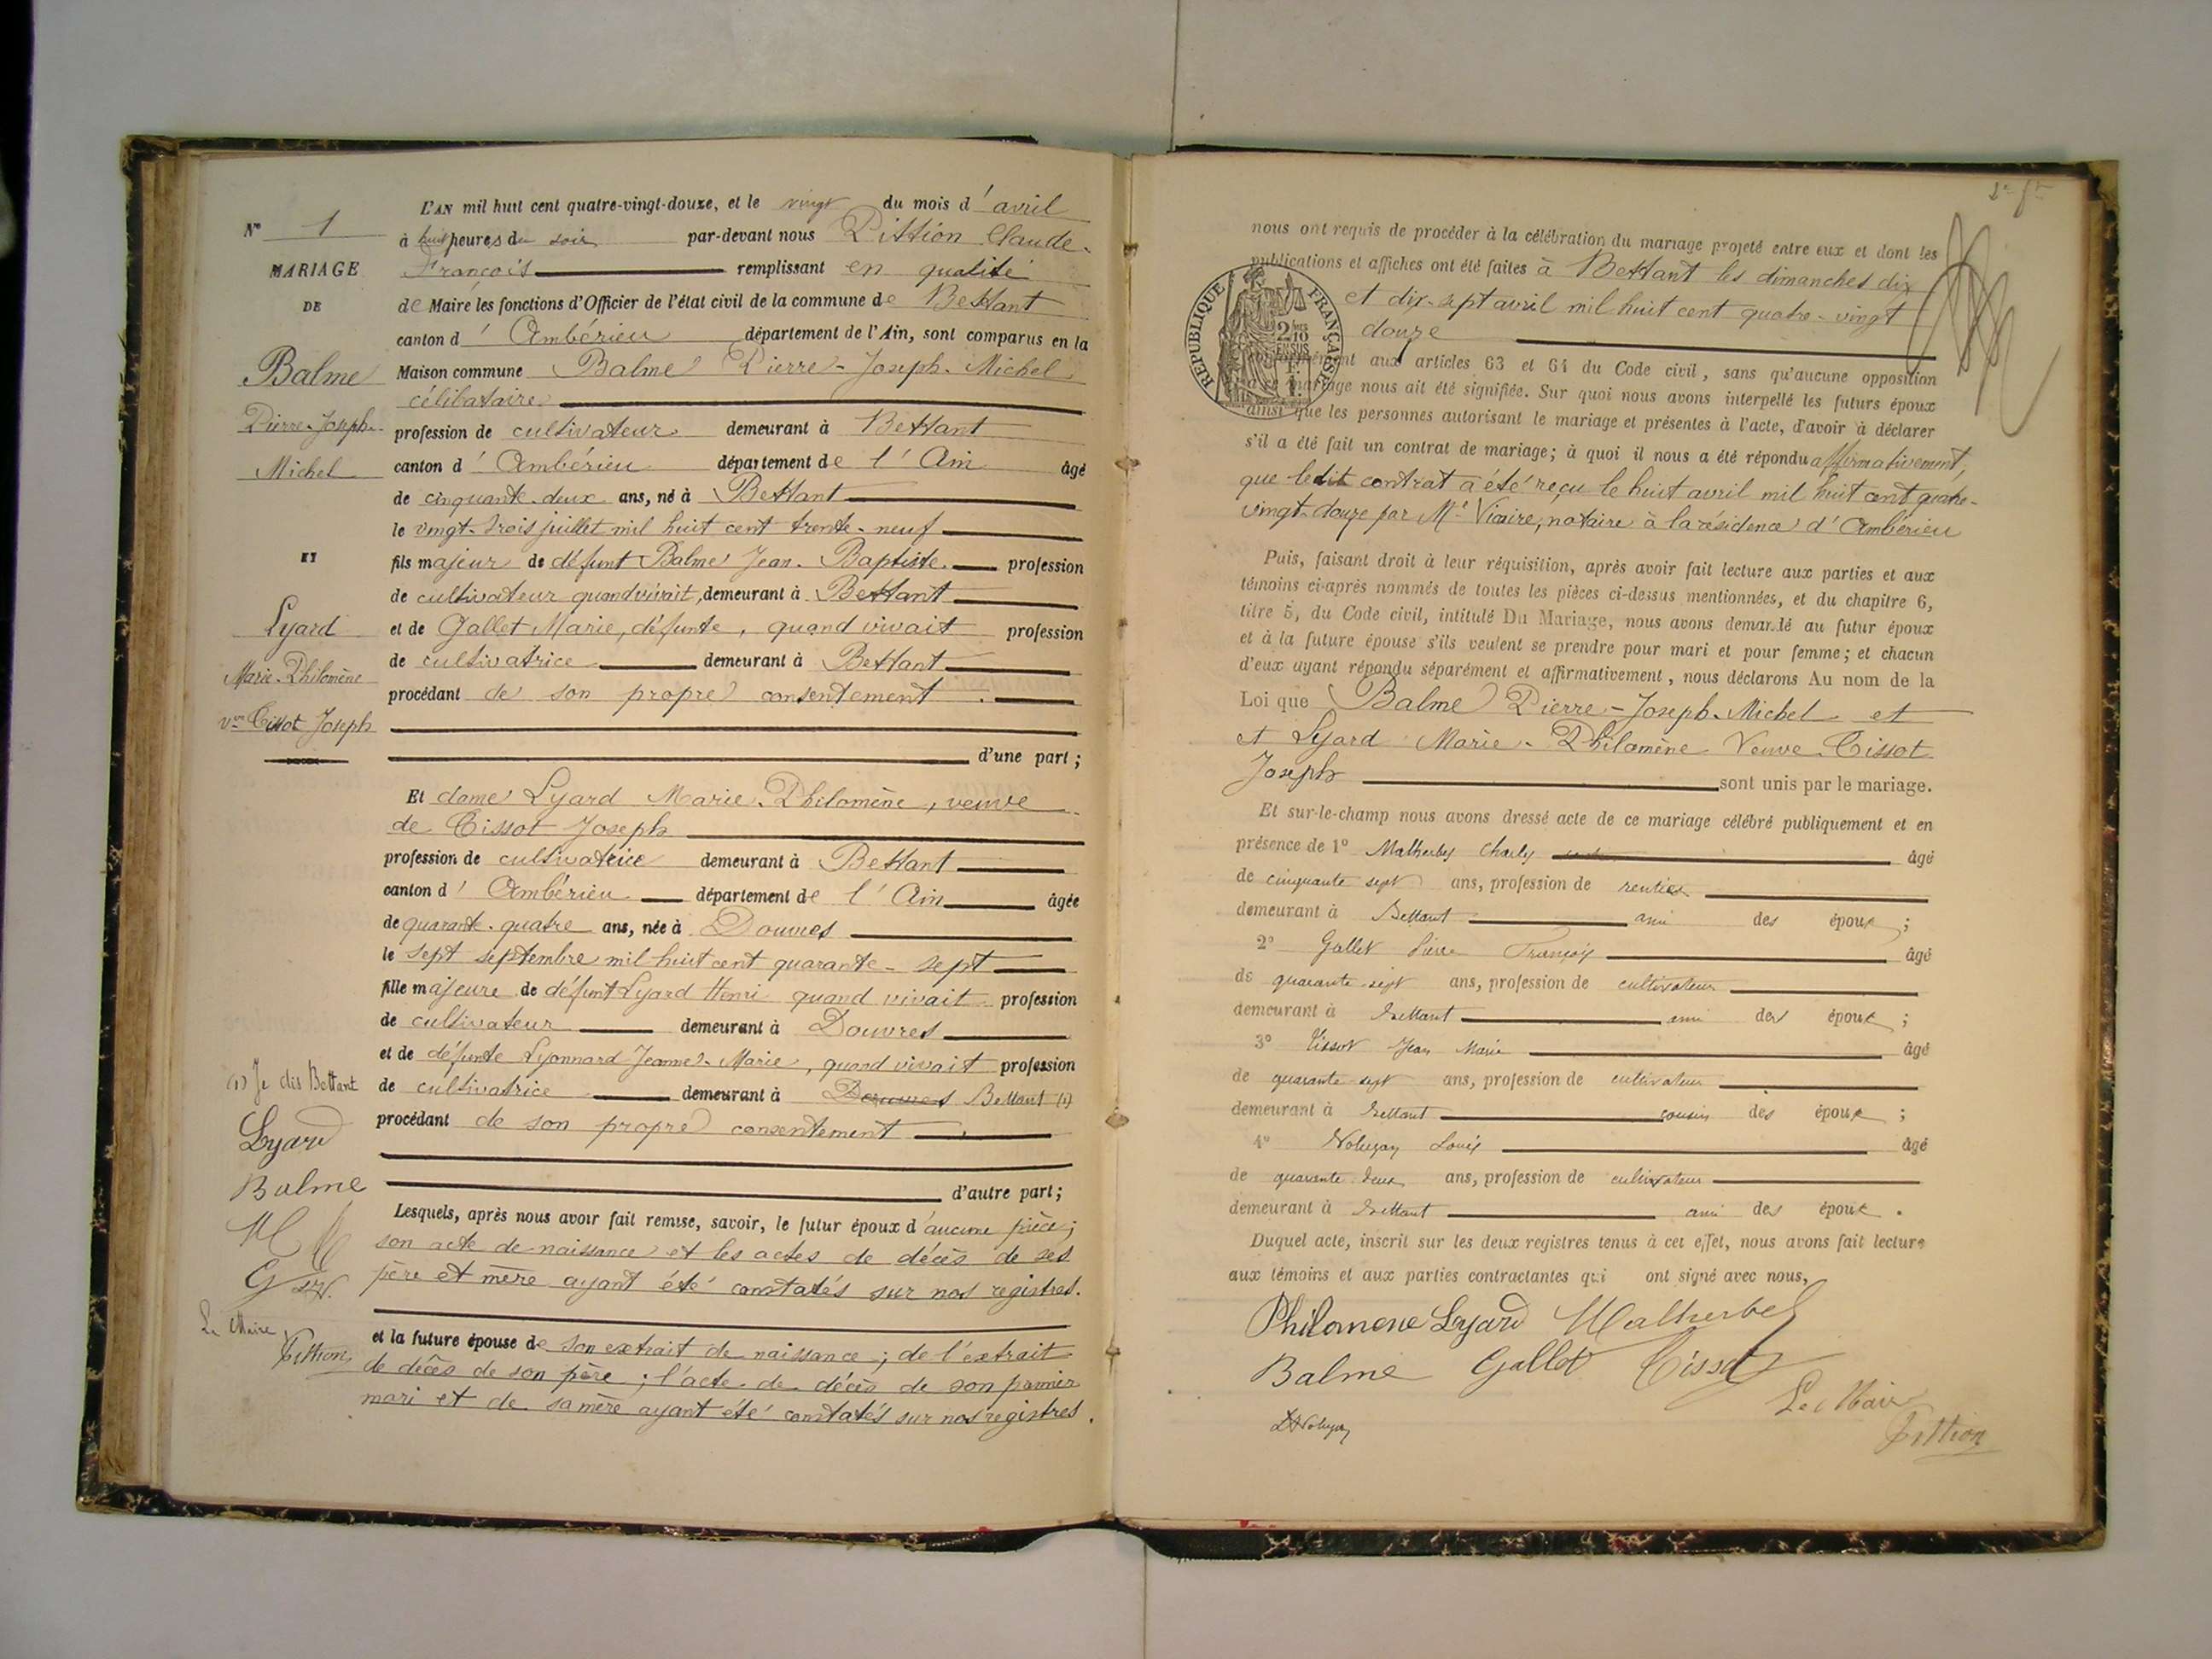 N° 1
MARIAGE
DE
Balme
Pierre-Joseph-
Michel
ET
Lyard
Marie-Philomène
vve Tissot Joseph
L'AN mil huit cent quatre-vingt-douze, et le vingt du mois d'avril
à huit heures du soir par-devant nous Pittion Claude-
François remplissant en qualité
de Maire les fonctions d'Officier de l'état civil de la commune de Bettant
canton d'Ambérieu département de l'Ain, sont comparus en la
Maison commune Balme Pierre-Joseph-Michel
célibataire
profession de cultivateur demeurant à Bettant
canton d'Ambérieu département de l'Ain âgé
de cinquante-deux ans, né à Bettant
le vingt-trois juillet mil huit cent trente-neuf
fils majeur de défunt Balme Jean-Baptiste profession
de cultivateur quand vivait, demeurant à Bettant
et de Gallet Marie, défunte, quand vivait profession
de cultivatrice demeurant à Bettant
procédant de son propre consentement.
d'une part;
Et dame Lyard Marie-Philomène, veuve
de Tissot Joseph
profession de cultivatrice demeurant à Bettant
canton d'Ambérieu département de l'Ain âgée
de quarante-quatre ans, née à Douvres
le sept septembre mil huit cent quarante-sept
fille majeure de défunt Lyard Henri quand vivait profession
de cultivateur demeurant à Douvres
et de défunte Lyonnard Jeanne-Marie, quand vivait profession
de cultivatrice demeurant à Douvres Bettant (1)
procédant de son propre consentement.
d'autre part;
Lesquels, après nous avoir fait remise, savoir, le futur époux d'aucune pièce;
son acte de naissance et les actes de décès de ses
père et mère ayant été constatés sur nos registres.
et la future épouse de son extrait de naissance; de l'extrait
de décès de son père; l'acte de décès de son premier
mari et de sa mère ayant été constatés sur nos registres.
(1) Je dis Bettant
Lyard
Balme
M
G
Le Maire
Pittion
nous ont requis de procéder à la célébration du mariage projeté entre eux et dont les
publications et affiches ont été faites à Bettant les dimanches dix
et dix-sept avril mil huit cent quatre-vingt
douze
RÉPUBLIQUE FRANÇAISE
2/10 EN SUS
aux articles 63 et 64 du Code civil, sans qu'aucune opposition
mariage nous ait été signifiée. Sur quoi nous avons interpellé les futurs époux
ainsi que les personnes autorisant le mariage et présentes à l'acte, d'avoir à déclarer
s'il a été fait un contrat de mariage; à quoi il nous a été répondu affirmativement,
que ledit contrat a été reçu le huit avril mil huit cent quatre-
vingt-douze par Me Vicaire, notaire à la résidence d'Ambérieu
Puis, faisant droit à leur réquisition, après avoir fait lecture aux parties et aux
témoins ci-après nommés de toutes les pièces ci-dessus mentionnées, et du chapitre 6,
titre 5, du Code civil, intitulé Du Mariage, nous avons demandé au futur époux
et à la future épouse s'ils veulent se prendre pour mari et pour femme; et chacun
d'eux ayant répondu séparément et affirmativement, nous déclarons Au nom de la
Loi que Balme Pierre-Joseph-Michel et
et Lyard Marie-Philomène Veuve Tissot
Joseph sont unis par le mariage.
Et sur-le-champ nous avons dressé acte de ce mariage célébré publiquement et en
présence de 1° Malherbes Charles âgé
de cinquante sept ans, profession de rentier
demeurant à Bettant ami des époux;
2° Gallet Pierre François âgé
de quarante-sept ans, profession de cultivateur
demeurant à Bettant ami des époux;
3° Tissot Jean Marie âgé
de quarante-sept ans, profession de cultivateur
demeurant à Bettant cousin des époux;
4° Louis âgé
de quarante-deux ans, profession de cultivateur
demeurant à Bettant ami des époux.
Duquel acte, inscrit sur les deux registres tenus à cet effet, nous avons fait lecture
aux témoins et aux parties contractantes qui ont signé avec nous,
Philomene Lyard Malherbes
Balme Gallet Tissot
Le Maire
Pittion